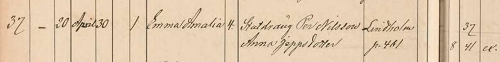 37 – 20 April 30 1 Emma Amalia 4 Statdräng Per Nilsson Lindholm 37
Anna Jeppsdotter p. 481 8 41 ex.